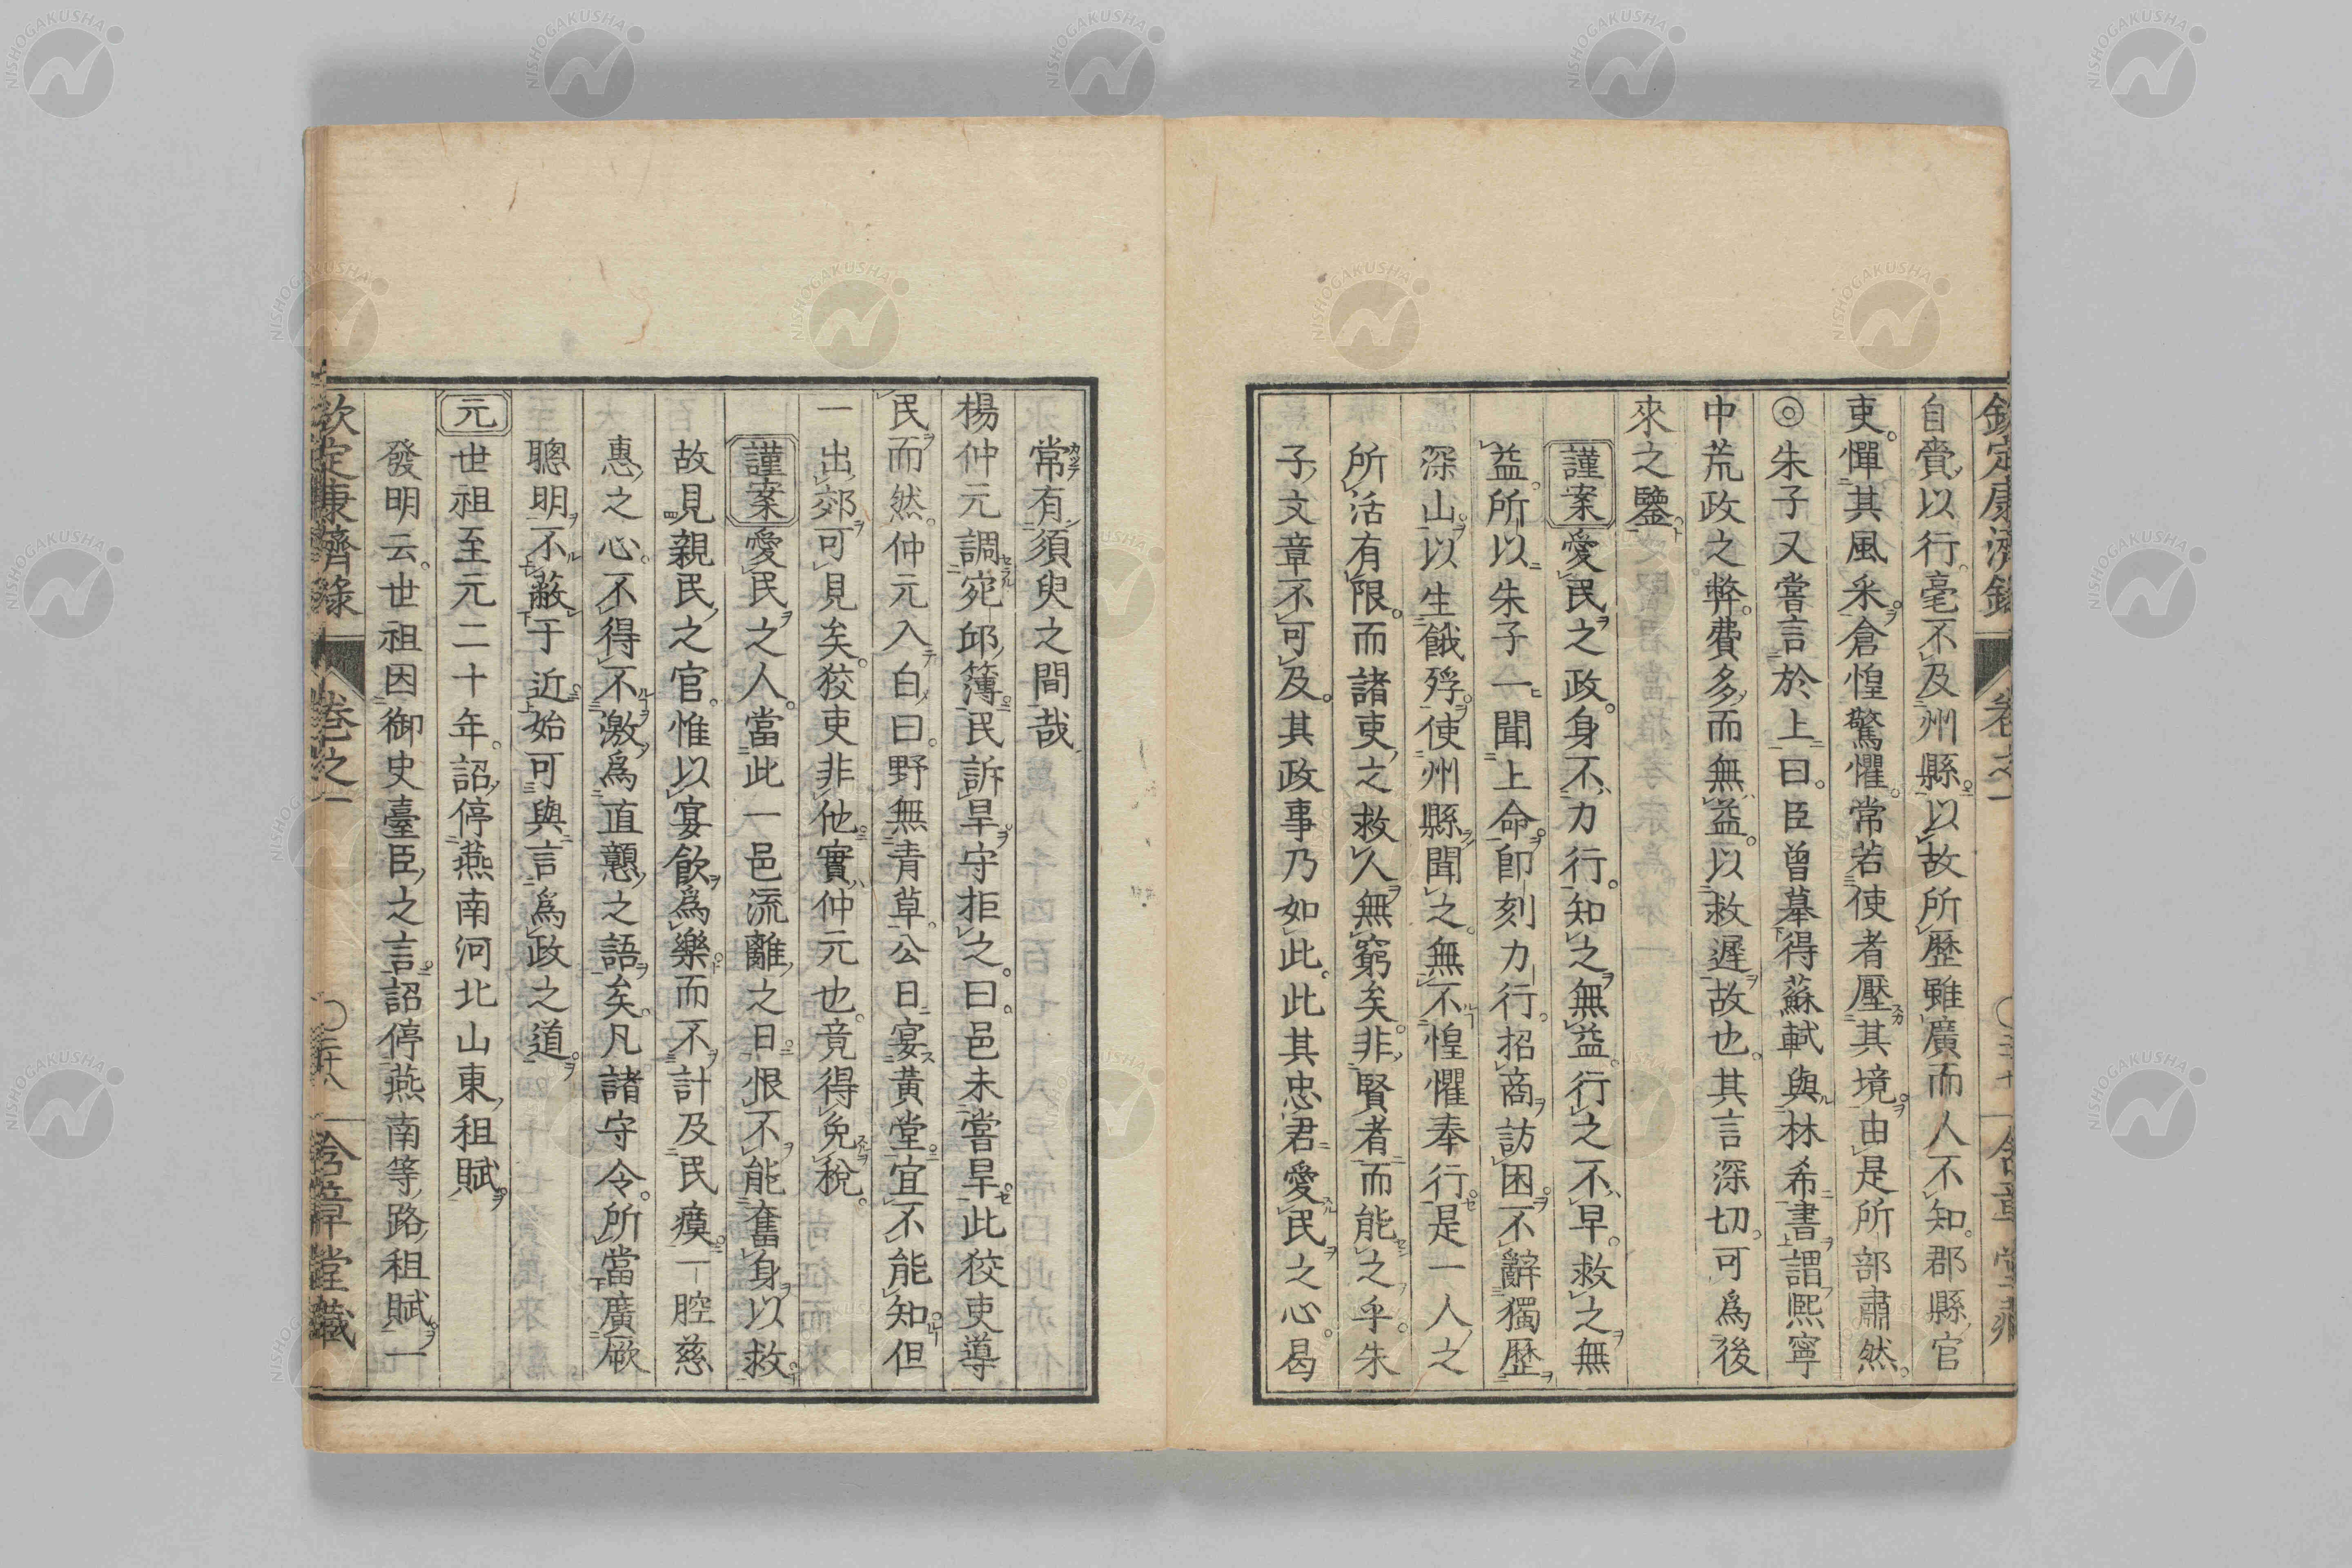 欽定康濟錄 卷之一 含章堂藏
自賷以行毫不及州縣以故所歷雖廣而人不知郡縣官
吏憚其風采倉惶驚懼常若使者壓其境由是所部肅然
◎朱子又嘗言於上曰臣曾摹得蘇軾與林希書謂熙寧
中荒政之弊費多而無益以救遲故也其言深切可爲後
來之鑒
謹案愛民之政身不力行知之無益行之不早救之無
益所以朱子一聞上命卽刻力行招商訪困不辭獨歷
深山以生餓殍使州縣聞之無不惶懼奉行是一人之
所活有限而諸吏之救人無窮矣非賢者而能之乎朱
子文章不可及其政事乃如此此其忠君愛民之心曷
常有須臾之間哉
楊仲元調宛邱簿民訴旱守拒之曰邑未嘗旱此狡吏導
民而然仲元入白曰野無青草公日宴黃堂宜不能知但
一出郊可見矣狡吏非他實仲元也竟得免稅
謹案愛民之人當此一邑流離之日恨不能奮身以救
故見親民之官惟以宴飮爲樂而不計及民瘼一腔慈
惠之心不得不激爲直戇之語矣凡諸守令所當廣厥
聰明不蔽于近始可與言爲政之道
元世祖至元二十年詔停燕南河北山東租賦
發明云世祖因御史臺臣之言詔停燕南等路租賦一
欽定康濟錄 卷之一 〇三十八 含章堂藏
NISHOGAKUSHA